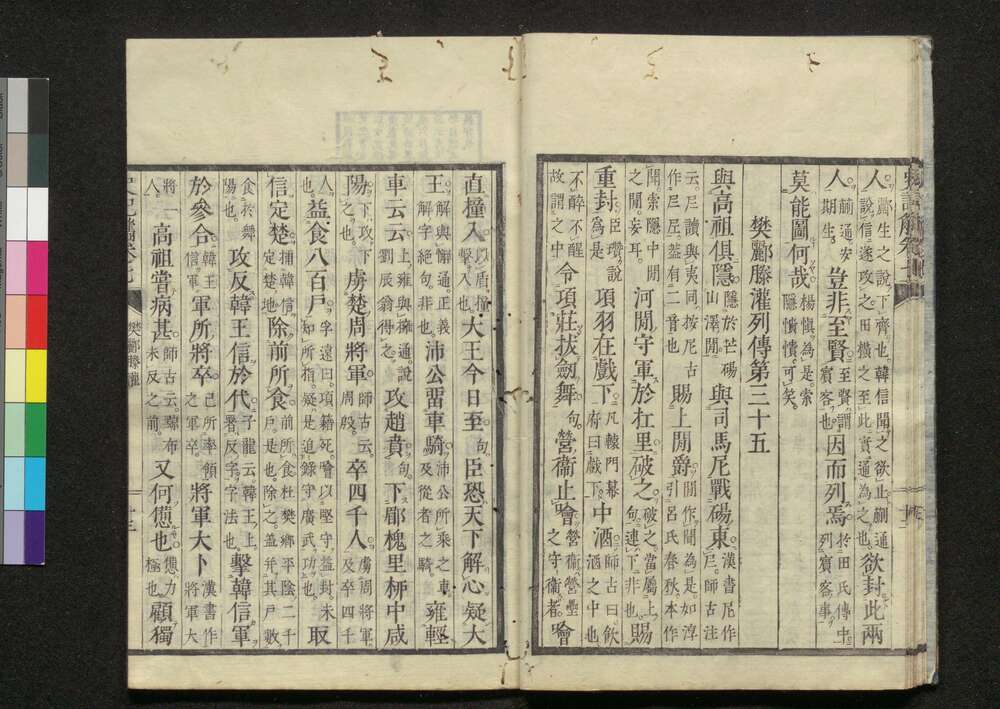 人酈生之說下齊也韓信聞之欲止蒯通說信遂攻之田橫之至此實通為之也欲封此兩
人蒯通安期生豈非至賢至賢謂賓客也因而列焉於田氏傳中列賓客事
莫能圖何哉楊愼為是索隱憒憒可矣
樊酈滕灌列傳第三十五
與高祖俱隱隱於芒碭山澤間與司馬尼戰碭東漢書尼作㞾師古注
云㞾讀與夷同按尼古作㞾㞾蓋有二音也賜上閒爵閒作聞為是如淳引呂氏春秋本作
聞索隱中閒妄耳河閒守軍於杠里破之破之當屬上句連下非也賜
重封臣瓚說為是項羽在戲下凡轅門幕府曰戲下中酒師古曰飲酒之中也
不醉不醒故謂之中令項莊拔劔舞句營衞止噲營衞營壘之守衞者噲
直撞入以盾撞擊入也大王今日至句臣恐天下解心疑大
王解與懈通正義解字絕句非也沛公畱車騎沛公所乘之車及從者之騎雍輕
車云云上雍與擁通說劉辰翁得之攻趙賁句下郿槐里柳中咸
陽下攻下之也虜楚周將軍師古云周殷卒四千人虜周將軍及卒四千
人也益食八百戶字遠曰項籍死噲以堅守益封未知所指疑是追錄守廣武功也取
信定楚捕韓信定楚地除前所食前所食杜樊鄉平陰二千戶是也除之蓋并其戶數
食於舞陽也攻反韓王信於代子龍云韓王上署反字字法也擊韓信軍
於參合韓王信軍軍所將卒己所率領之軍卒將軍大卜漢書作將軍大
將一人高祖嘗病甚師古云黥布未反之前又何憊也憊力極也顧獨
樊酈滕灌